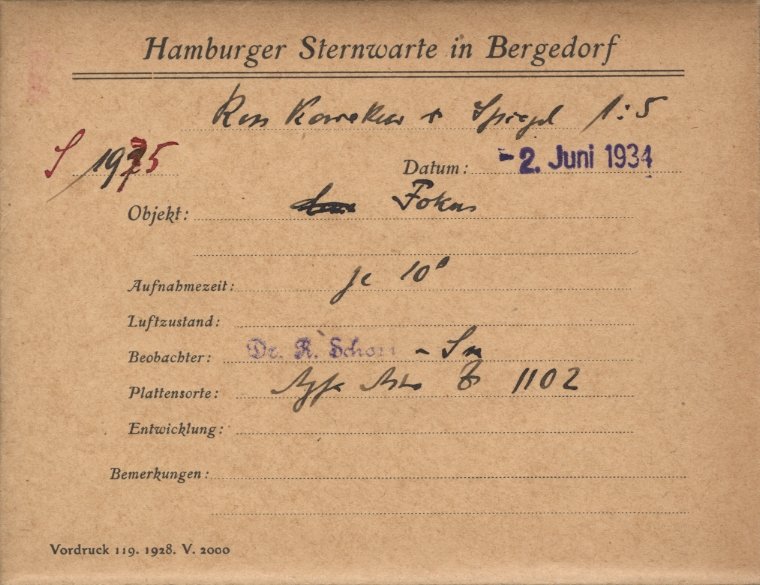 Hamburger Sternwarte in Bergedorf
Ross Korrektur + Spiegel 1:5
S 1975
Datum: -2. Juni 1934
Objekt: Fokus
Aufnahmezeit: je 10s
Luftzustand:
Beobachter: Dr. R. Schorr - Sn
Plattensorte: Agfa Astro 1102
Entwicklung:
Bemerkungen:
Vordruck 119. 1928. V. 2000